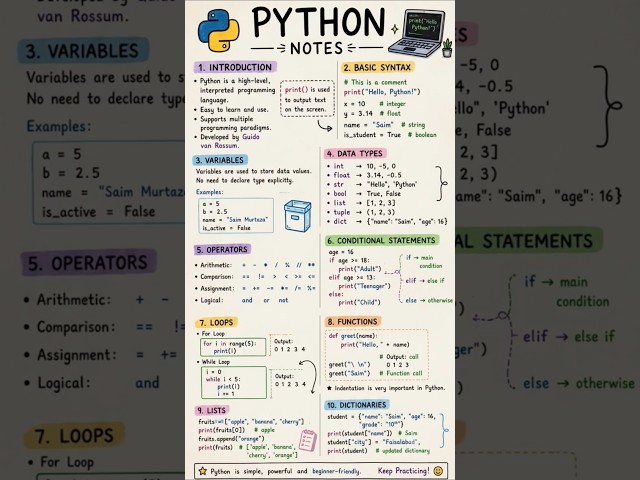 PYTHON
NOTES
print("Hello
Python!")
1. INTRODUCTION
• Python is a high-level,
interpreted programming
language.
• Easy to learn and use.
• Supports multiple
programming paradigms.
• Developed by Guido
van Rossum.
print() is used
to output text
on the screen.
2. BASIC SYNTAX
# This is a comment
print("Hello, Python!")
x = 10 # integer
y = 3.14 # float
name = "Saim" # string
is_student = True # boolean
3. VARIABLES
Variables are used to store data values.
No need to declare type explicitly.
Examples:
a = 5
b = 2.5
name = "Saim Murtaza"
is_active = False
4. DATA TYPES
• int → 10, -5, 0
• float → 3.14, -0.5
• str → "Hello", 'Python'
• bool → True, False
• list → [1, 2, 3]
• tuple → (1, 2, 3)
• dict → {"name": "Saim", "age": 16}
5. OPERATORS
• Arithmetic: + - * / % // **
• Comparison: == != > < >= <=
• Assignment: = += -= *= /= %=
• Logical: and or not
6. CONDITIONAL STATEMENTS
age = 16
if age >= 18:
print("Adult")
elif age >= 13:
print("Teenager")
else:
print("Child")
if → main
condition
elif → else if
else → otherwise
7. LOOPS
• For Loop
for i in range(5):
print(i)
Output:
0 1 2 3 4
• While Loop
i = 0
while i < 5:
print(i)
i += 1
Output:
0 1 2 3 4
8. FUNCTIONS
def greet(name):
print("Hello, " + name)
# Output: call
greet("\ \n") 0 1 2 3
greet("Saim") # Function call
★ Indentation is very important in Python.
9. LISTS
fruits = ["apple", "banana", "cherry"]
print(fruits[0]) # apple
fruits.append("orange")
print(fruits) # ['apple', 'banana',
'cherry', 'orange']
10. DICTIONARIES
student = {"name": "Saim", "age": 16,
"grade": "10th"}
print(student["name"]) # Saim
student["city"] = "Faisalabad"
print(student) # updated dictionary
Python is simple, powerful and beginner-friendly. Keep Practicing!
van Rossum.
3. VARIABLES
Variables are used to s
No need to declare type
Examples:
a = 5
b = 2.5
name = "Saim Murtaza
is_active = False
5. OPERATORS
• Arithmetic: + -
• Comparison: == !=
• Assignment: = +=
• Logical: and
7. LOOPS
• For Loop
-5, 0
4, -0.5
lo", 'Python'
e, False
2, 3]
2, 3)
name": "Saim", "age": 16}
STATEMENTS
if → main
condition
elif → else if
else → otherwise